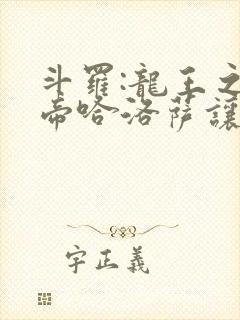 斗羅:龍王之
帝哈洛薩讓
字正義